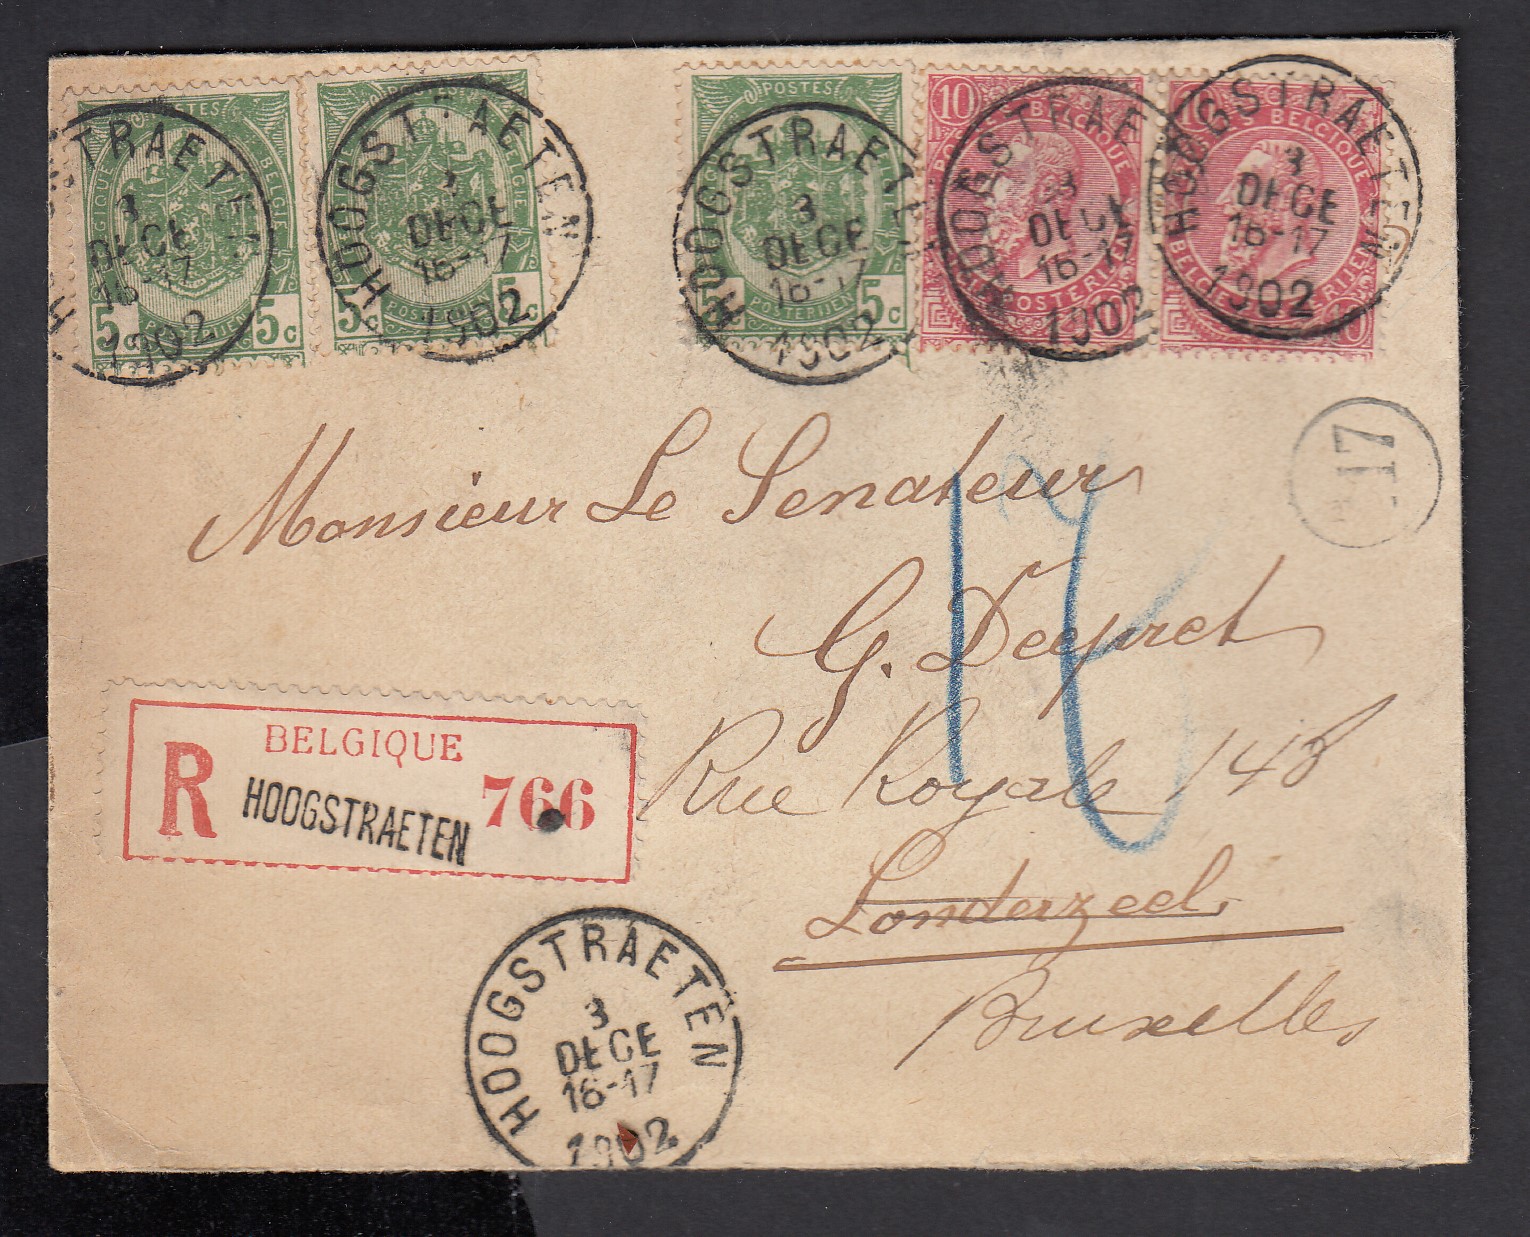 POSTES
BELGIQUE BELGIE
5c 5c
POSTERIJEN
HOOGSTRAETEN
3
DECE
16-17
1902
POSTES
BELGIE
5c 5c
POSTERIJEN
HOOGSTRAETEN
3
DECE
16-17
1902
POSTES
5c 5c
POSTERIJEN
HOOGSTRAETEN
3
DECE
16-17
1902
10
BELGIQUE
POSTERIJEN
HOOGSTRAETEN
3
DECE
16-17
1902
10
BELGIQUE
BELGIE POSTERIJEN
10
HOOGSTRAETEN
3
DECE
16-17
1902
17
Monsieur Le Senateur
G. Deepret
Rue Royale 148
Londerzeel
Bruxelles
BELGIQUE
R HOOGSTRAETEN 766
HOOGSTRAETEN
3
DECE
16-17
1902